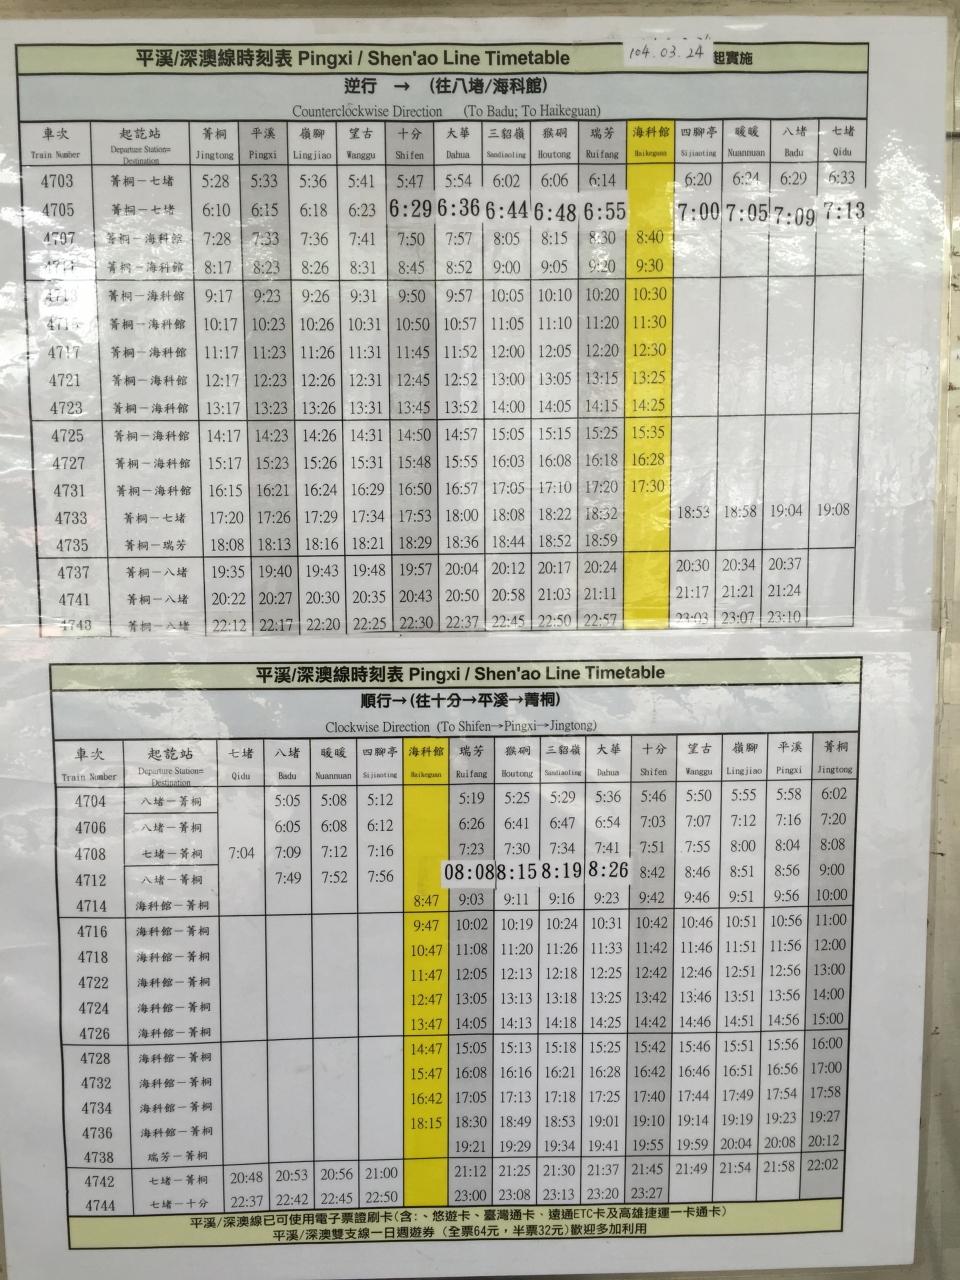 平溪/深澳線時刻表 Pingxi / Shen'ao Line Timetable 104.03.24 起實施
逆行 → (往八堵/海科館)
Counterclockwise Direction (To Badu; To Haikeguan)
車次 起訖站 菁桐 平溪 嶺腳 望古 十分 大華 三貂嶺 猴硐 瑞芳 海科館 四腳亭 暖暖 八堵 七堵
Train Number Departure Station= Destination Jingtong Pingxi Lingjiao Wanggu Shifen Dahua Sandiaoling Houtong Ruifang Haikeguan Sijiaoting Nuannuan Badu Qidu
4703 菁桐－七堵 5:28 5:33 5:36 5:41 5:47 5:54 6:02 6:06 6:14 6:20 6:24 6:29 6:33
4705 菁桐－七堵 6:10 6:15 6:18 6:23 6:29 6:36 6:44 6:48 6:55 7:00 7:05 7:09 7:13
4707 菁桐－海科館 7:28 7:33 7:36 7:41 7:50 7:57 8:05 8:15 8:30 8:40
4711 菁桐－海科館 8:17 8:23 8:26 8:31 8:45 8:52 9:00 9:05 9:20 9:30
4713 菁桐－海科館 9:17 9:23 9:26 9:31 9:50 9:57 10:05 10:10 10:20 10:30
菁桐－海科館 10:17 10:23 10:26 10:31 10:50 10:57 11:05 11:10 11:20 11:30
4717 菁桐－海科館 11:17 11:23 11:26 11:31 11:45 11:52 12:00 12:05 12:20 12:30
4721 菁桐－海科館 12:17 12:23 12:26 12:31 12:45 12:52 13:00 13:05 13:15 13:25
4723 菁桐－海科館 13:17 13:23 13:26 13:31 13:45 13:52 14:00 14:05 14:15 14:25
4725 菁桐－海科館 14:17 14:23 14:26 14:31 14:50 14:57 15:05 15:15 15:25 15:35
4727 菁桐－海科館 15:17 15:23 15:26 15:31 15:48 15:55 16:03 16:08 16:18 16:28
4731 菁桐－海科館 16:15 16:21 16:24 16:29 16:50 16:57 17:05 17:10 17:20 17:30
4733 菁桐－七堵 17:20 17:26 17:29 17:34 17:53 18:00 18:08 18:22 18:32 18:53 18:58 19:04 19:08
4735 菁桐－瑞芳 18:08 18:13 18:16 18:21 18:29 18:36 18:44 18:52 18:59
4737 菁桐－八堵 19:35 19:40 19:43 19:48 19:57 20:04 20:12 20:17 20:24 20:30 20:34 20:37
4741 菁桐－八堵 20:22 20:27 20:30 20:35 20:43 20:50 20:58 21:03 21:11 21:17 21:21 21:24
4743 菁桐－八堵 22:12 22:17 22:20 22:25 22:30 22:37 22:45 22:50 22:57 23:03 23:07 23:10
平溪/深澳線時刻表 Pingxi / Shen'ao Line Timetable
順行→(往十分→平溪→菁桐)
Clockwise Direction (To Shifen→Pingxi→Jingtong)
車次 起訖站 七堵 八堵 暖暖 四腳亭 海科館 瑞芳 猴硐 三貂嶺 大華 十分 望古 嶺腳 平溪 菁桐
Train Number Departure Station= Destination Qidu Badu Nuannuan Sijiaoting Haikeguan Ruifang Houtong Sandiaoling Dahua Shifen Wanggu Lingjiao Pingxi Jingtong
4704 八堵－菁桐 5:05 5:08 5:12 5:19 5:25 5:29 5:36 5:46 5:50 5:55 5:58 6:02
4706 八堵－菁桐 6:05 6:08 6:12 6:26 6:41 6:47 6:54 7:03 7:07 7:12 7:16 7:20
4708 七堵－菁桐 7:04 7:09 7:12 7:16 7:23 7:30 7:34 7:41 7:51 7:55 8:00 8:04 8:08
4712 八堵－菁桐 7:49 7:52 7:56 08:08 8:15 8:19 8:26 8:42 8:46 8:51 8:56 9:00
4714 海科館－菁桐 8:47 9:03 9:11 9:16 9:23 9:42 9:46 9:51 9:56 10:00
4716 海科館－菁桐 9:47 10:02 10:19 10:24 10:31 10:42 10:46 10:51 10:56 11:00
4718 海科館－菁桐 10:47 11:08 11:20 11:26 11:33 11:42 11:46 11:51 11:56 12:00
4722 海科館－菁桐 11:47 12:05 12:13 12:18 12:25 12:42 12:46 12:51 12:56 13:00
4724 海科館－菁桐 12:47 13:05 13:13 13:18 13:25 13:42 13:46 13:51 13:56 14:00
4726 海科館－菁桐 13:47 14:05 14:13 14:18 14:25 14:42 14:46 14:51 14:56 15:00
4728 海科館－菁桐 14:47 15:05 15:13 15:18 15:25 15:42 15:46 15:51 15:56 16:00
4732 海科館－菁桐 15:47 16:08 16:16 16:21 16:28 16:42 16:46 16:51 16:56 17:00
4734 海科館－菁桐 16:42 17:05 17:13 17:18 17:25 17:40 17:44 17:49 17:54 17:58
4736 海科館－菁桐 18:15 18:30 18:49 18:53 19:01 19:10 19:14 19:19 19:23 19:27
4738 瑞芳－菁桐 19:21 19:29 19:34 19:41 19:55 19:59 20:04 20:08 20:12
4742 七堵－菁桐 20:48 20:53 20:56 21:00 21:12 21:25 21:30 21:37 21:45 21:49 21:54 21:58 22:02
4744 七堵－十分 22:37 22:42 22:45 22:50 23:00 23:08 23:13 23:20 23:27
平溪/深澳線已可使用電子票證刷卡(含:、悠遊卡、臺灣通卡、遠通ETC卡及高雄捷運一卡通卡)
平溪/深澳雙支線一日週遊券 (全票64元，半票32元)歡迎多加利用